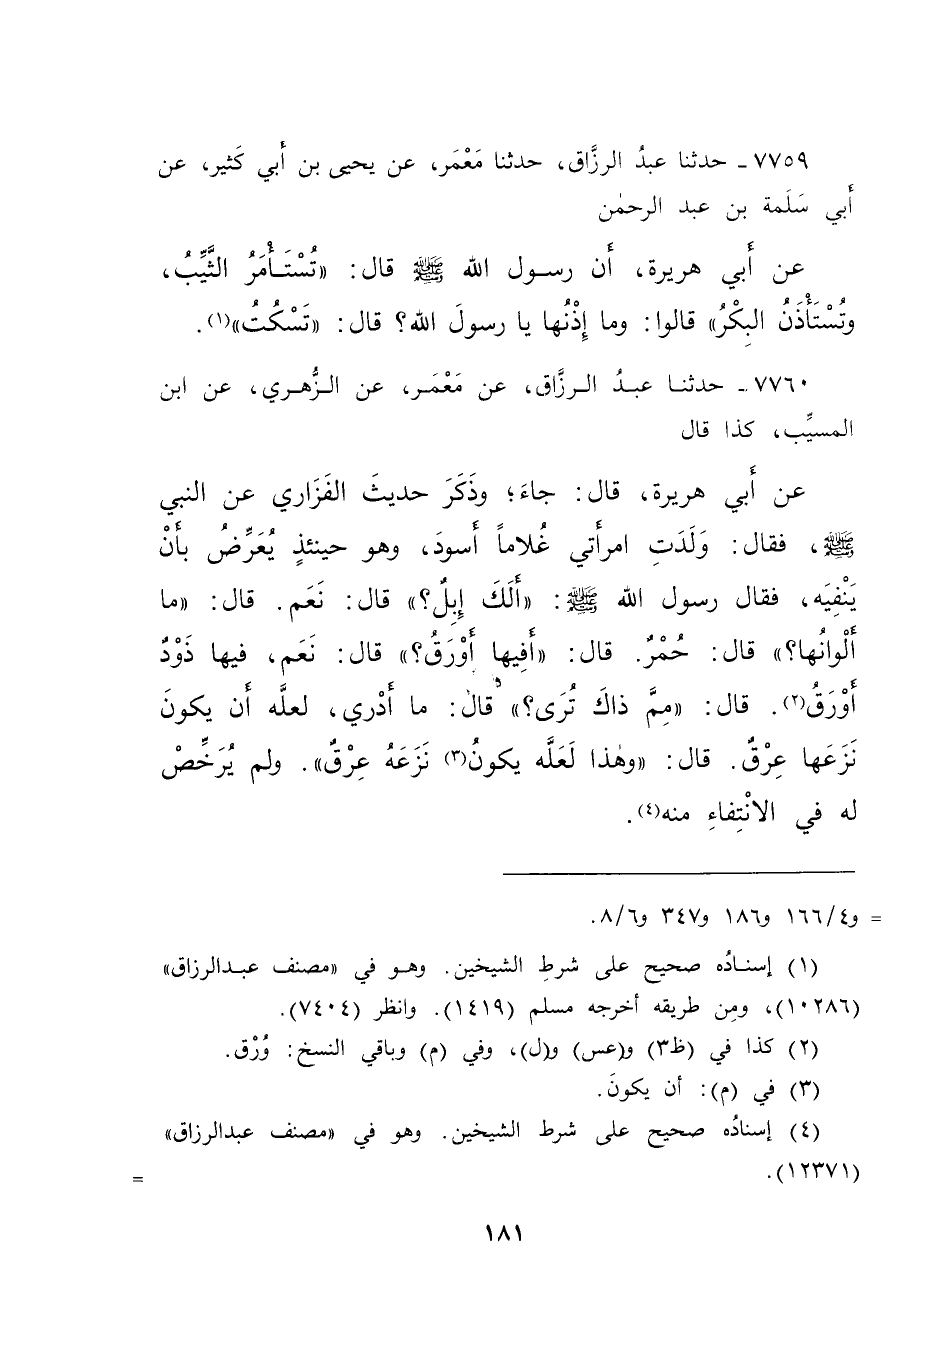 ٧٧٥٩ ـ حدثنا عبدُ الرزَّاق، حدثنا مَعْمَر، عن يحيى بن أَبي كَثير، عن
أَبي سَلَمة بن عبد الرحمٰن
عن أَبي هريرة، أَن رسول الله ﷺ قال: «تُسْتَأْمَرُ الثَّيِّبُ،
وتُسْتَأْذَنُ البِكْرُ» قالوا: وما إِذْنُها يا رسولَ الله؟ قال: «تَسْكُتُ»(١).
٧٧٦٠ ـ حدثنا عبدُ الرزَّاق، عن مَعْمَر، عن الزُّهري، عن ابن
المسيِّب، كذا قال
عن أَبي هريرة، قال: جاءَ؛ وذَكَرَ حديثَ الفَزَاري عن النبي
ﷺ، فقال: وَلَدَتِ امرأَتي غُلاماً أَسودَ، وهو حينئذٍ يُعَرِّضُ بأَنْ
يَنْفِيَه، فقال رسول الله ﷺ: «أَلَكَ إِبِلٌ؟» قال: نَعَم. قال: «ما
أَلْوانُها؟» قال: حُمْرٌ. قال: «أَفِيها أَوْرَقُ؟» قال: نَعَم، فيها ذَوْدٌ
أَوْرَقُ(٢). قال: «مِمَّ ذاكَ تُرَى؟» قال: ما أَدْري، لعلَّه أَن يكونَ
نَزَعَها عِرْقٌ. قال: «وهٰذا لَعَلَّه يكونُ(٣) نَزَعَهُ عِرْقٌ». ولم يُرَخِّصْ
له في الانْتِفاءِ منه(٤).
= و٤/١٦٦ و١٨٦ و٣٤٧ و٨/٦.
(١) إسنادُه صحيح على شرطِ الشيخين. وهو في «مصنف عبدالرزاق»
(١٠٢٨٦)، ومِن طريقه أخرجه مسلم (١٤١٩). وانظر (٧٤٠٤).
(٢) كذا في (ظ٣) و(عس) و(ل)، وفي (م) وباقي النسخ: وُرْق.
(٣) في (م): أن يكونَ.
(٤) إسنادُه صحيح على شرط الشيخين. وهو في «مصنف عبدالرزاق»
(١٢٣٧١). =
١٨١